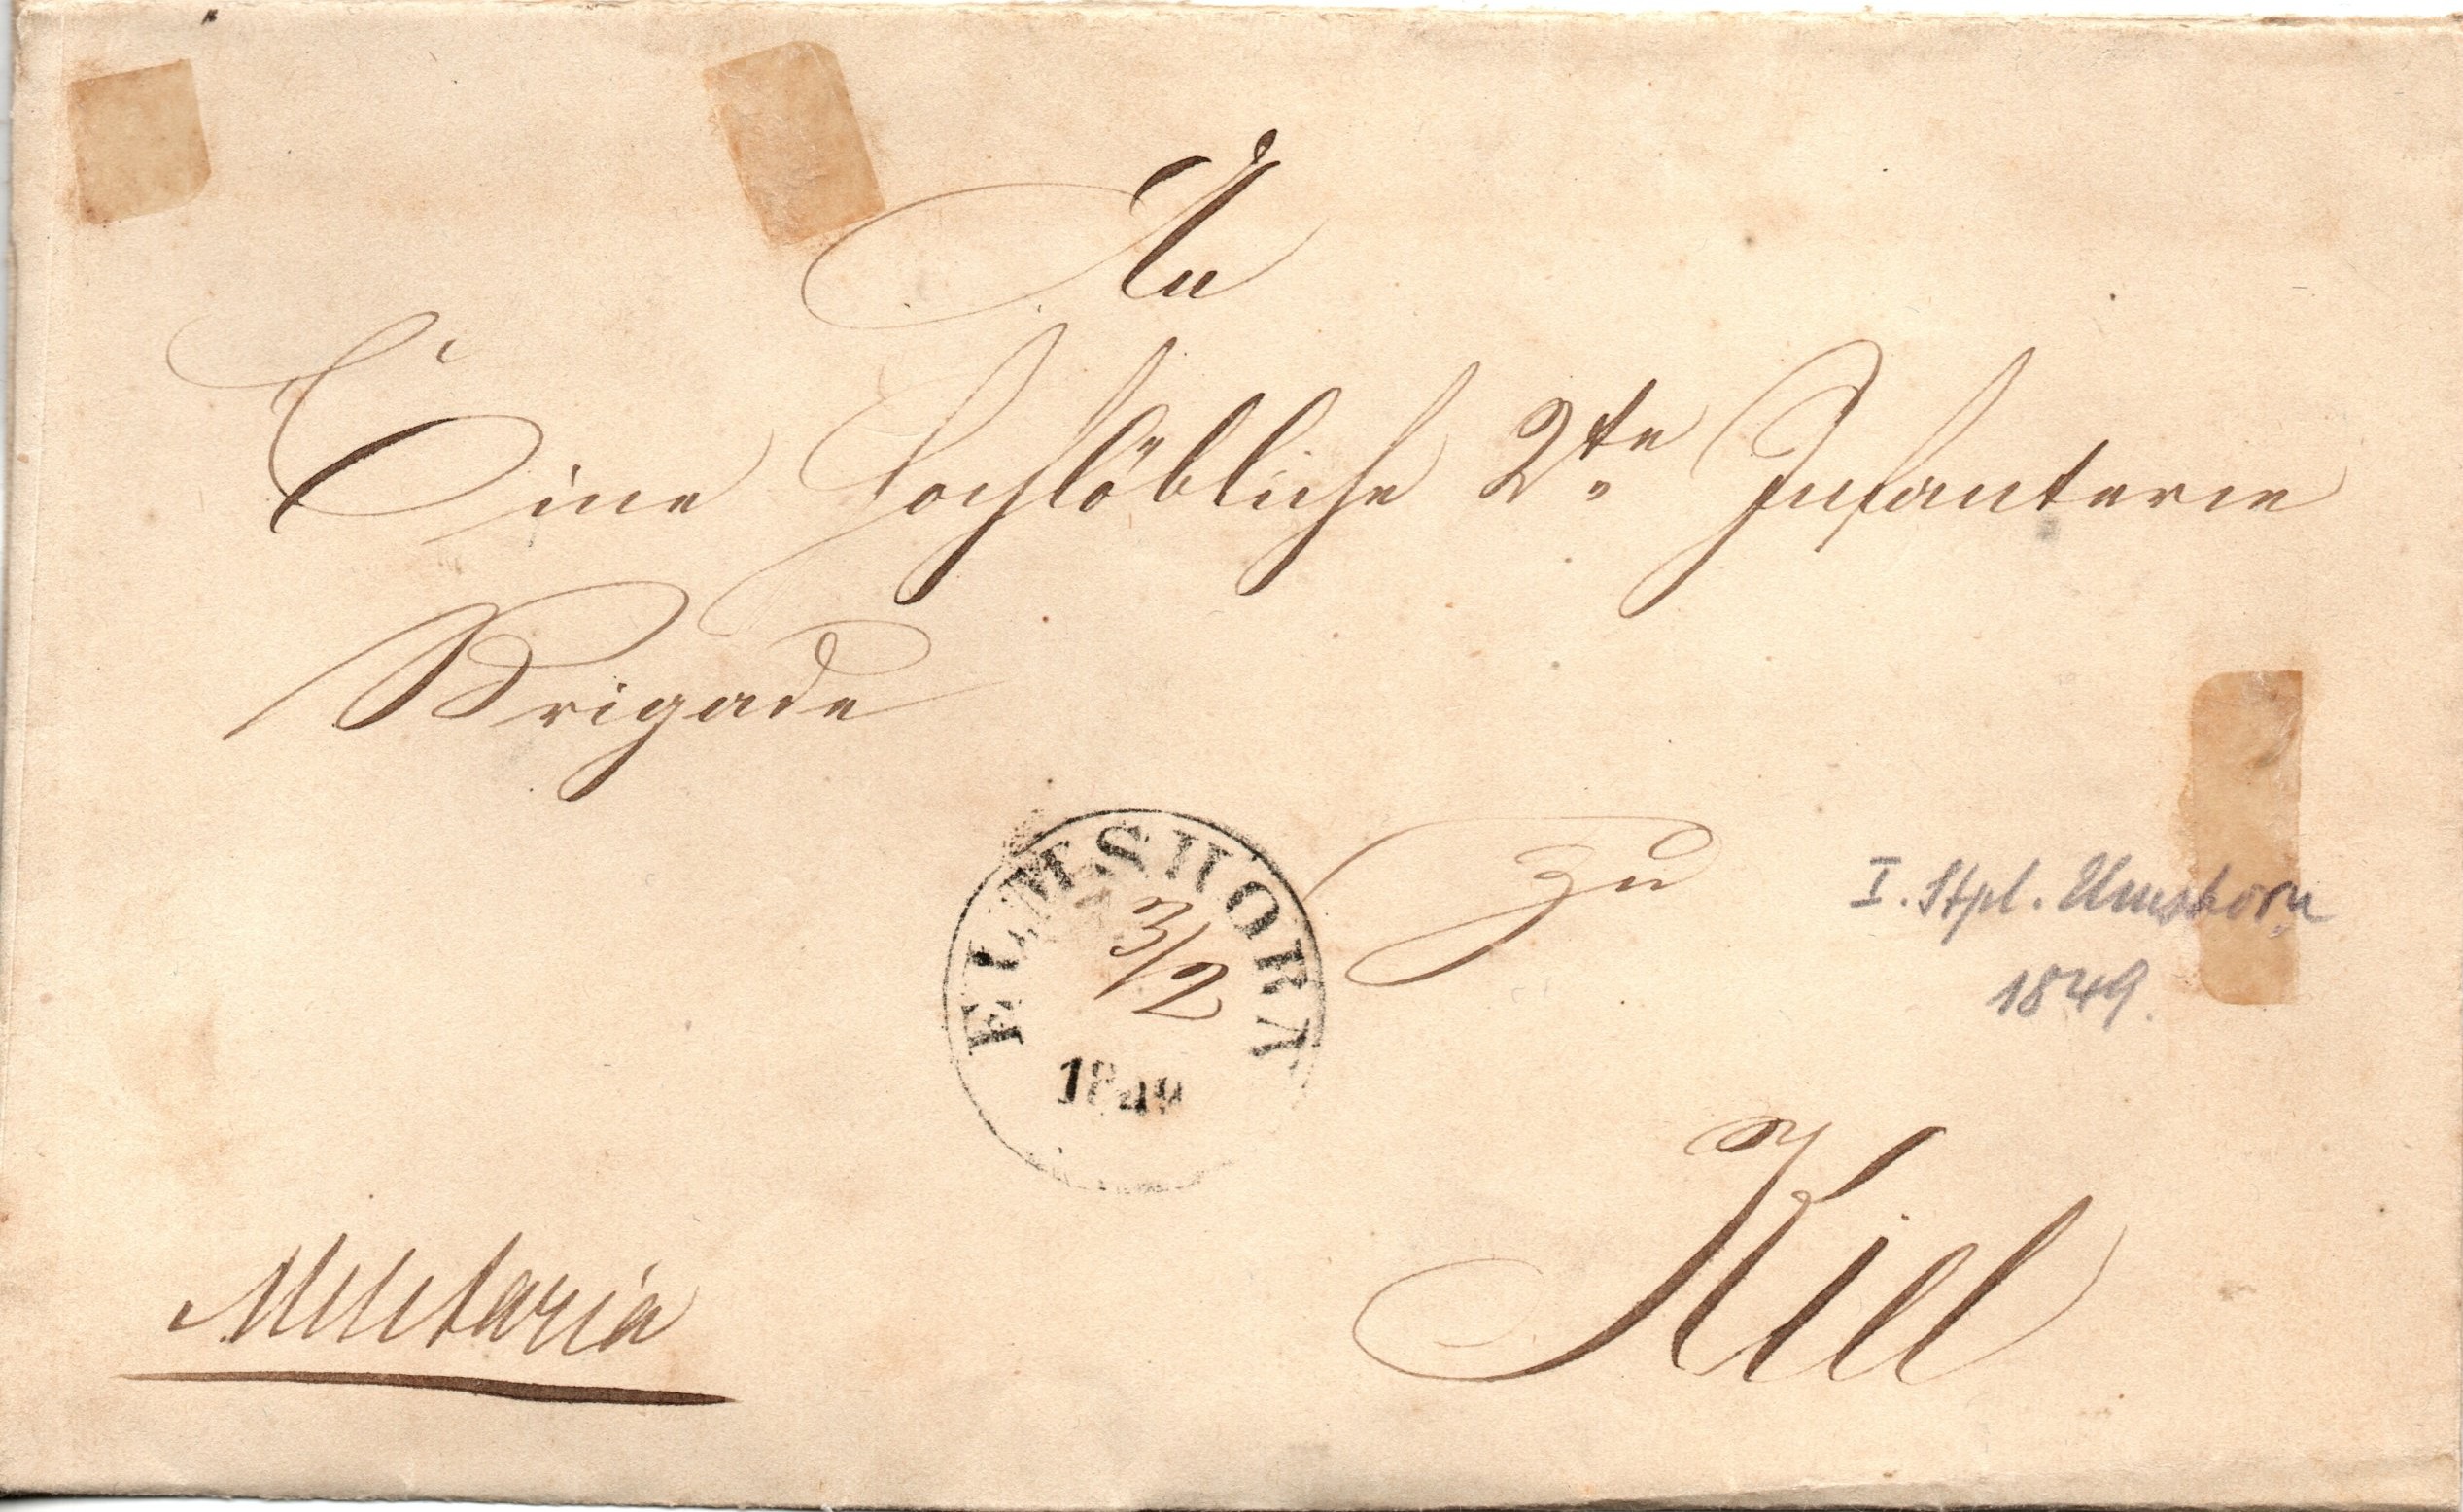 An
Eine Hochlöbliche 2te Infanterie
Brigade
ELMSHORN
3/2
1849
zu
I. Stpl. Elmshorn
1849.
Kiel
Militaria